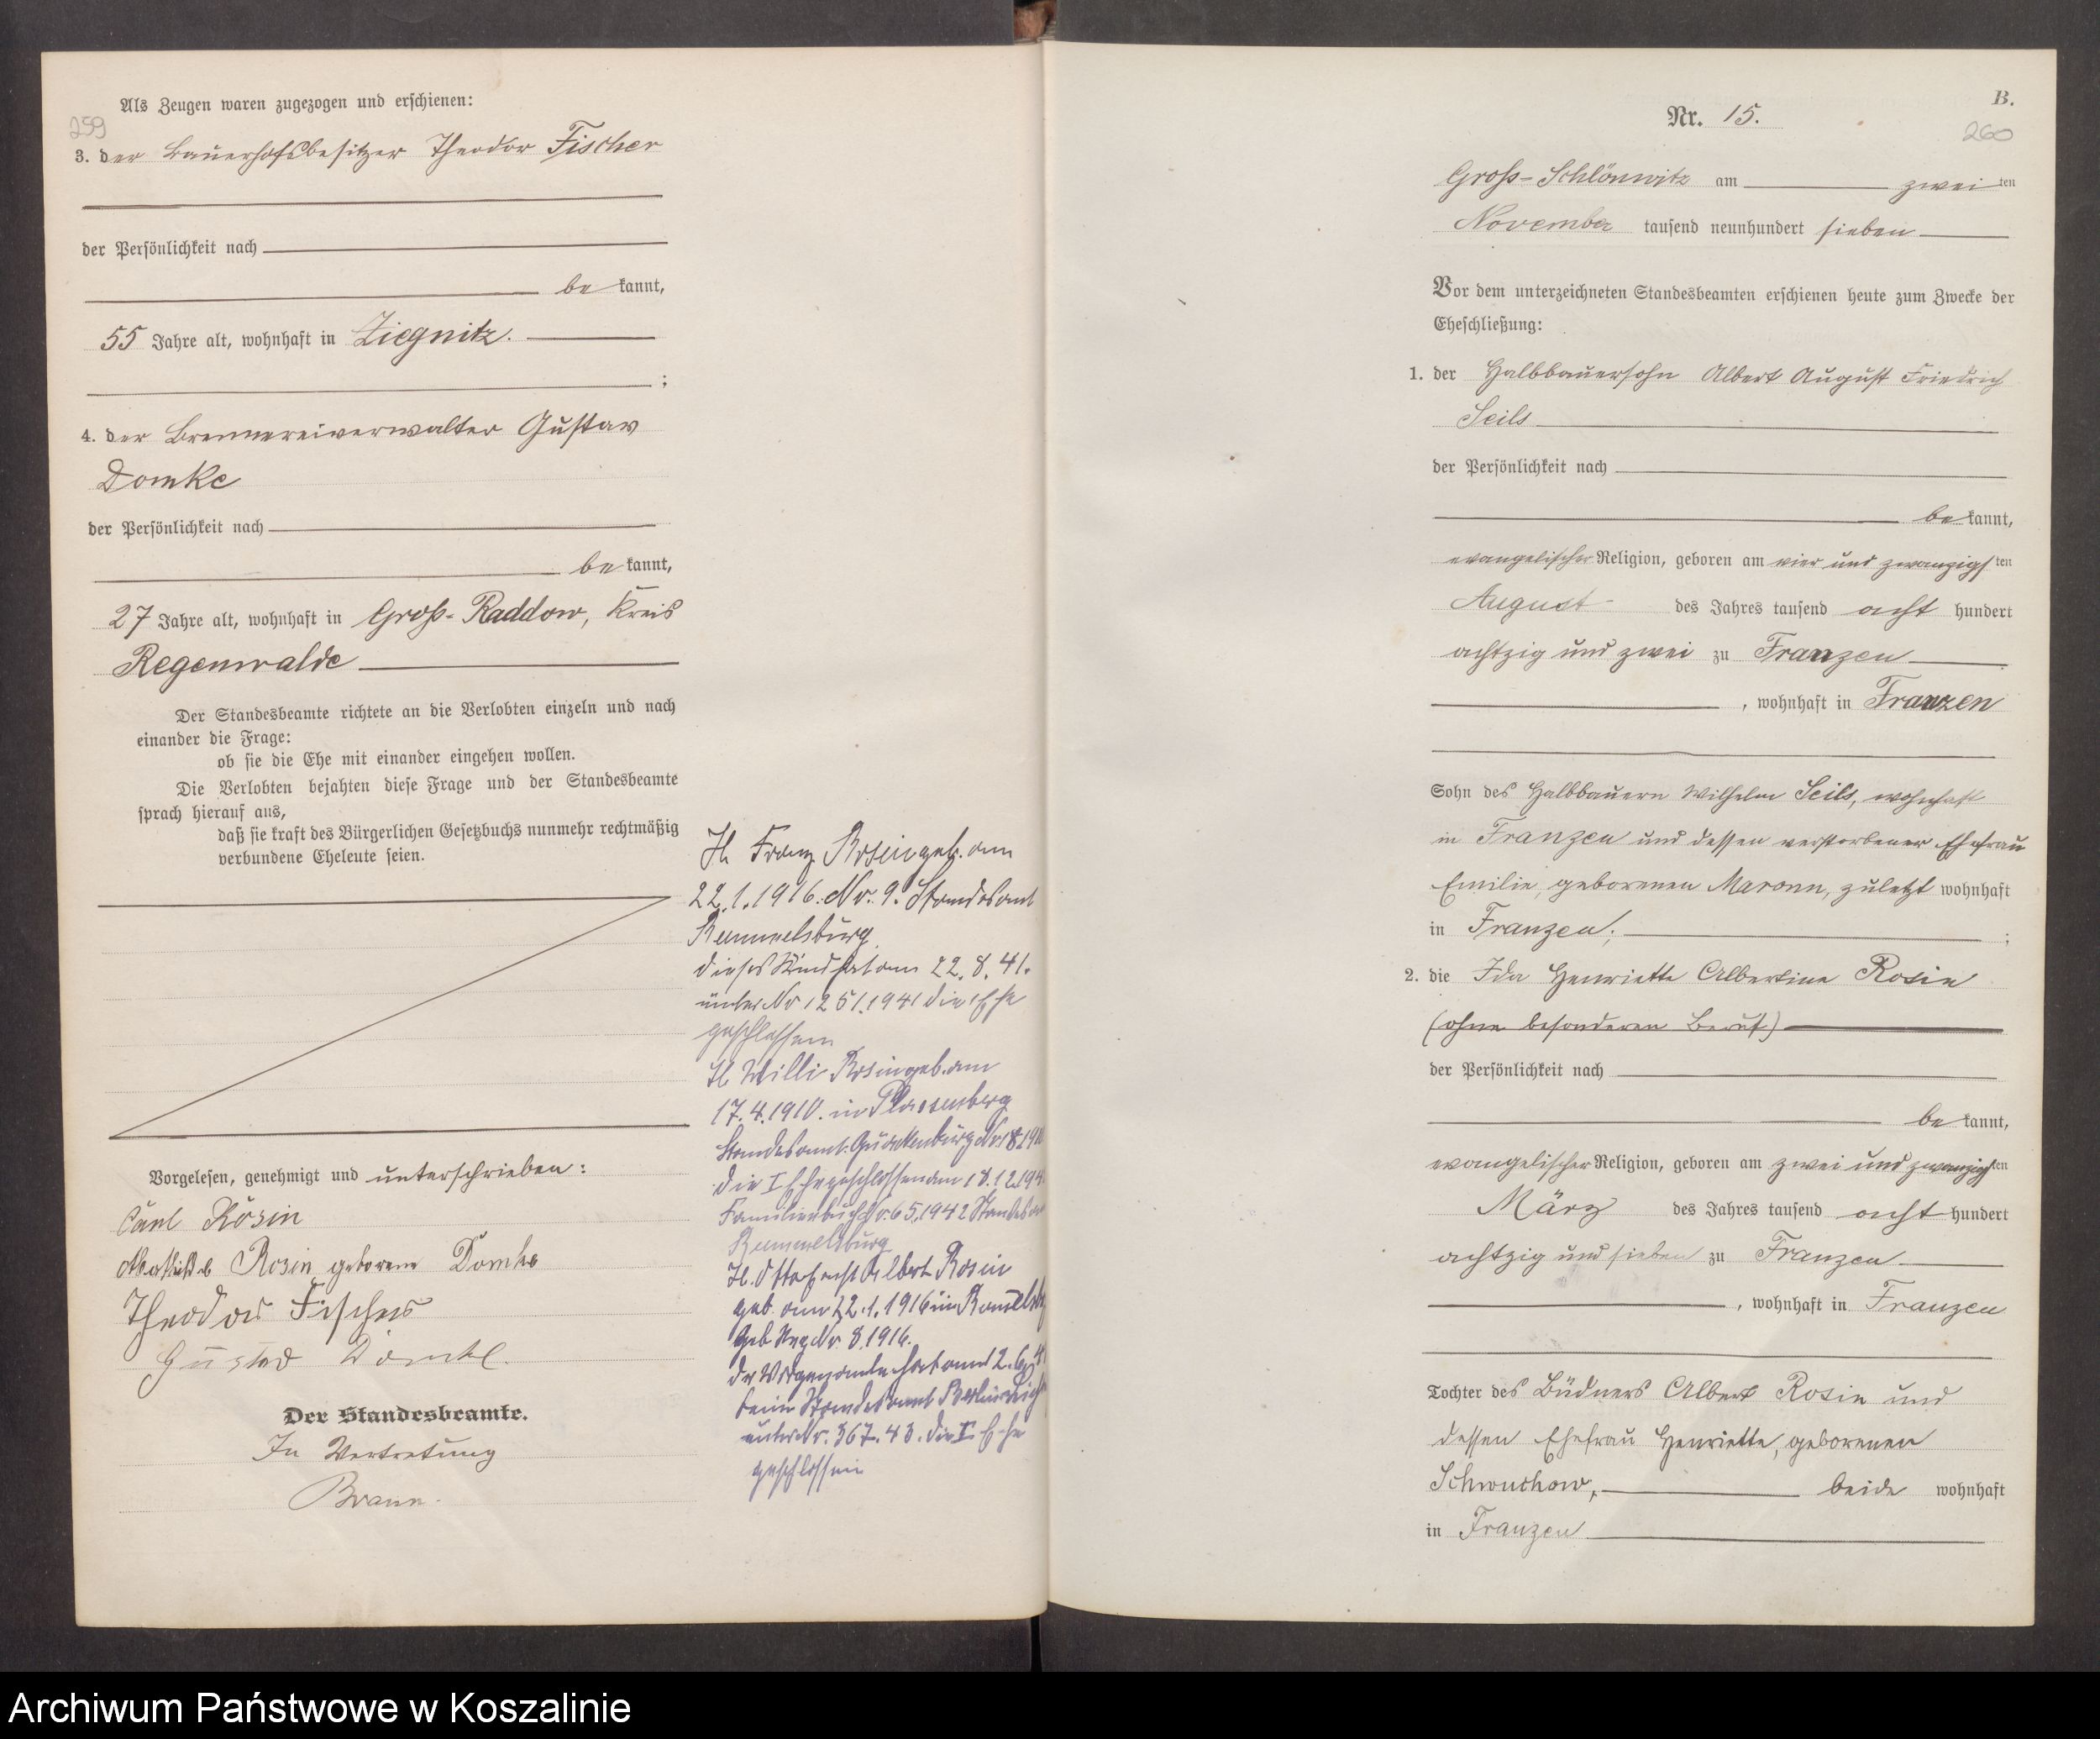 259
Als Zeugen waren zugezogen und erschienen:
3. der Bauerhofsbesitzer Theodor Fischer
der Persönlichkeit nach
be kannt,
55 Jahre alt, wohnhaft in Ziegnitz.
;
4. der Brennereiverwalter Gustav
Domke
der Persönlichkeit nach
be kannt,
27 Jahre alt, wohnhaft in Groß-Raddow, Kreis
Regenwalde
Der Standesbeamte richtete an die Verlobten einzeln und nach
einander die Frage:
ob sie die Ehe mit einander eingehen wollen.
Die Verlobten bejahten diese Frage und der Standesbeamte
sprach hierauf aus,
daß sie kraft des Bürgerlichen Gesetzbuchs nunmehr rechtmäßig
verbundene Eheleute seien.
Vorgelesen, genehmigt und unterschrieben:
Carl Rosin
Mathilde Rosin geborene Domke
Theodor Fischer
Gustav Domke.
Der Standesbeamte.
In Vertretung
Braun.
Franz Rosin geb. am
22.1.1916. Nr. 9. Standesamt
Rummelsburg
dieses Kind hat am 22.8.41.
unter Nr 1251.1941 die Ehe
geschlossen
Willi Rosin geb. am
17.4.1910. in Plassenberg
Standesamt Quackenburg
die I Ehe geschlossen am 18.12.194
Familienbuch Nr. 65.1942
Rummelsburg
Albert Rosin
geb. am 22.1.1916 in
Geb Reg Nr. 8.1916.
der Vorgenannte hat am 12.6.4
beim Standesamt
unter Nr. 367.43. die I. Ehe
geschlossen
B.
Nr. 15.
260
Groß-Schlönwitz am zwei ten
November tausend neunhundert sieben
Vor dem unterzeichneten Standesbeamten erschienen heute zum Zwecke der
Eheschließung:
1. der Halbbauersohn Albert August Friedrich
Seils
der Persönlichkeit nach
be kannt,
evangelischer Religion, geboren am vier und zwanzigs ten
August des Jahres tausend acht hundert
achtzig und zwei zu Franzen
, wohnhaft in Franzen
Sohn des Halbbauern Wilhelm Seils, wohnhaft
in Franzen und dessen verstorbener Ehefrau
Emilie, geborenen Maronn, zuletzt wohnhaft
in Franzen; ;
2. die Ida Henriette Albertine Rosin
(ohne besonderen Beruf)
der Persönlichkeit nach
be kannt,
evangelischer Religion, geboren am zwei und zwanzigs ten
März des Jahres tausend acht hundert
achtzig und sieben zu Franzen
, wohnhaft in Franzen
Tochter des Büdners Albert Rosin und
dessen Ehefrau Henriette, geborenen
Schwuchow, beide wohnhaft
in Franzen
Archiwum Państwowe w Koszalinie